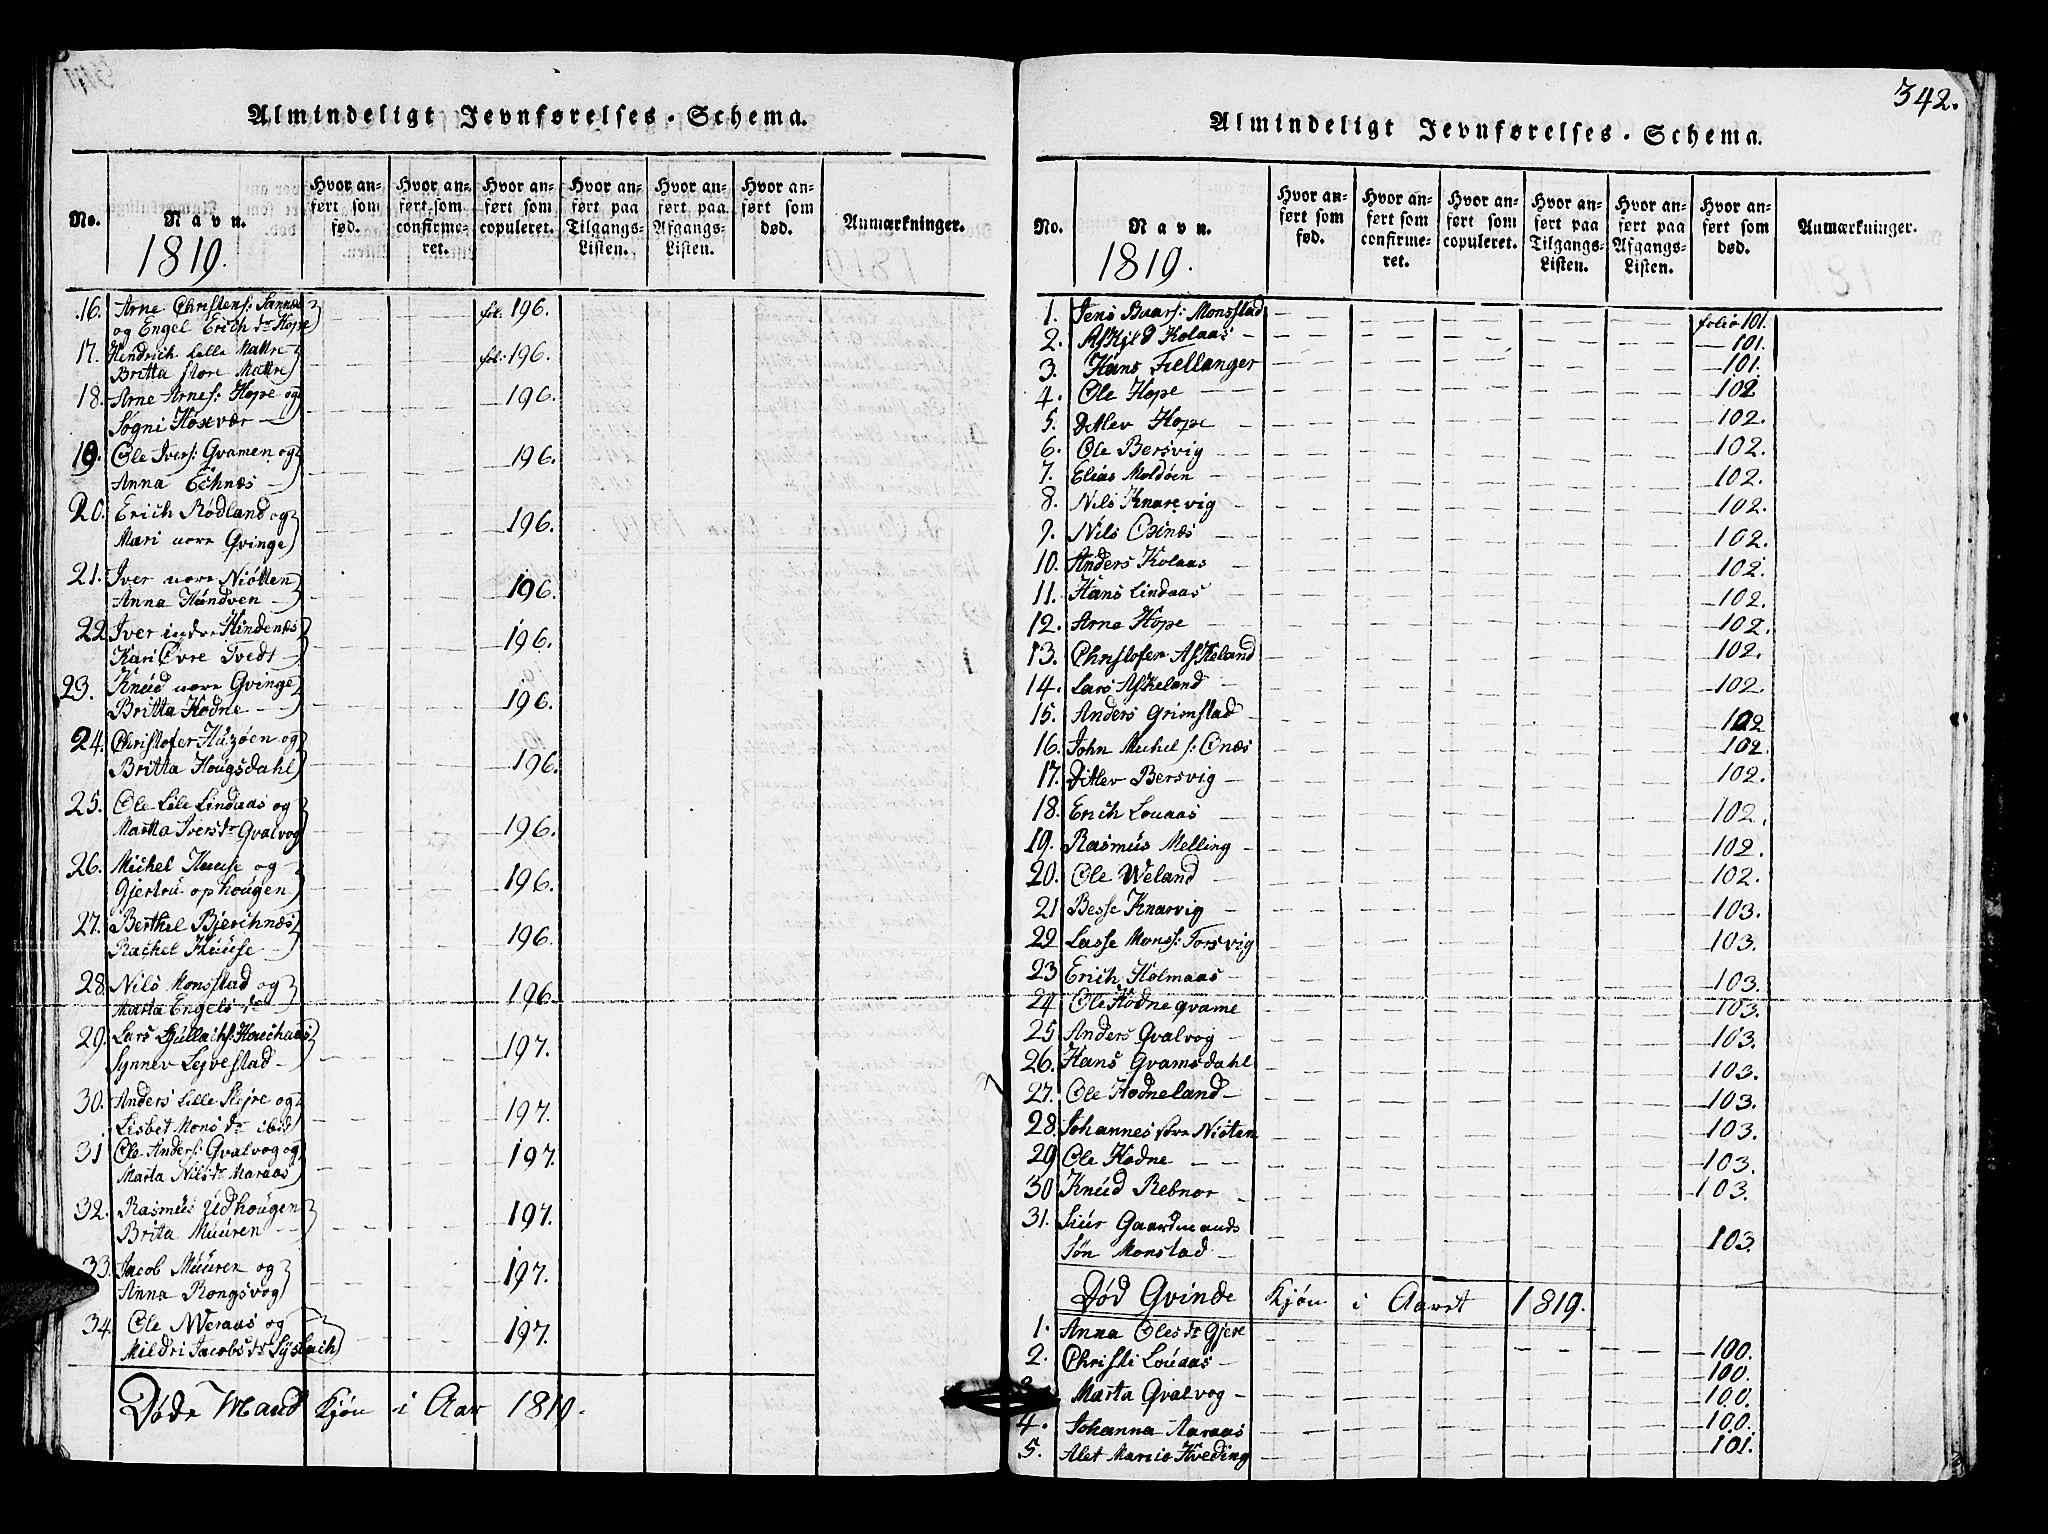 Almindeligt Jevnførelses-Schema.
No.
Navn.
1819.
Hvor anført som fød.
Hvor anført som confirmeret.
Hvor anført som copuleret.
Hvor anført paa Tilgangs-Listen.
Hvor anført paa Afgangs-Listen.
Hvor anført som død.
Anmærkninger.
16. Arne Christens: Sannæs
og Engel Erich dr Hope fol. 196.
17. Hendrich Lelle Mattre
Britta store Mattre fol. 196.
18. Arne Arnes: Hope og 196.
Søgni Hosevær
19. Ole Ivers: Gvamen og 196.
Anna Echnæs
20. Erich Rødland og 196.
Mari nore Gvinge
21. Iver nore Niøtten 196.
Anna Hundven
22 Iver indre Hindenæs 196.
Kari Øvre Tvedt
23. Knud nore Gvinge 196.
Britta Hodne
24. Christofer Husøen og
Britta Hougsdahl 196.
25. Ole Lile Lindaas og
Martta Iversdr Qvalvog 196.
26. Michel Huuse og
Gjertru ophougen 196.
27. Berthel Bjerchnæs
Rachel Huuse 196.
28. Nils Monsstad og
Marta Engels dr 196.
29. Lars
Synnev Lejvestad 197.
30. Anders Lille Skejre og
Lisbet Mons dr ibid 197.
31 Ole Anders: Qvalvog og
Marta Nilsdr Maraas 197.
32. Rasmus Udhougen
Brita Muuren 197.
33. Jacob Muuren og
Anna Rongsvog 197.
34. Ole Weraas og
Mildri Jacobsdr Sÿslach 197.
Døde Mand Kjøn i Aar 1819.
342.
Almindeligt Jevnførelses-Schema.
No.
Navn.
1819.
Hvor anført som fød.
Hvor anført som confirmeret.
Hvor anført som copuleret.
Hvor anført paa Tilgangs-Listen.
Hvor anført paa Afgangs-Listen.
Hvor anført som død.
Anmærkninger.
1. Jens Baars: Monsstad folio 101.
2. Askild Kolaas 101.
3. Hans Fiellanger 101.
4. Ole Hope 102
5. Ditlev Hope 102.
6. Ole Bersvig 102.
7. Elias Moldøen 102.
8. Nils Knarevig 102.
9. Nils Osnæs 102.
10. Anders Kolaas 102.
11. Hans Lindaas 102.
12. Arne Hope 102.
13. Christofer Askeland 102.
14. Lars Askeland 102.
15. Anders Grimstad 102
16. John Michels: Onæs 102.
17. Ditlev Bersvig 102.
18. Erich Louaas 102.
19. Rasmus Melling 102.
20. Ole Weland 102.
21 Besse Knarvig 103.
22 Lasse Mons: Torsvig 103.
23 Erich Holmaas 103.
24 Ole Hodneqvame 103.
25 Anders Qvalvog 103.
26. Hans Gvamsdahl 103.
27. Ole Hodneland 103.
28. Johannes søre Niøten 103.
29 Ole Hodne 103.
30 Knud Rebnor 103.
31. Siur Gaardmands
Søn Monstad 103.
Død Qvinde Kjøn i Aaret 1819.
1. Anna Olesdr Gjere 100.
2. Christi Louaas 100.
Marta Qvalvog 100.
4. Johanna Aaraas 100.
5. Alet Marie Hveding 101.